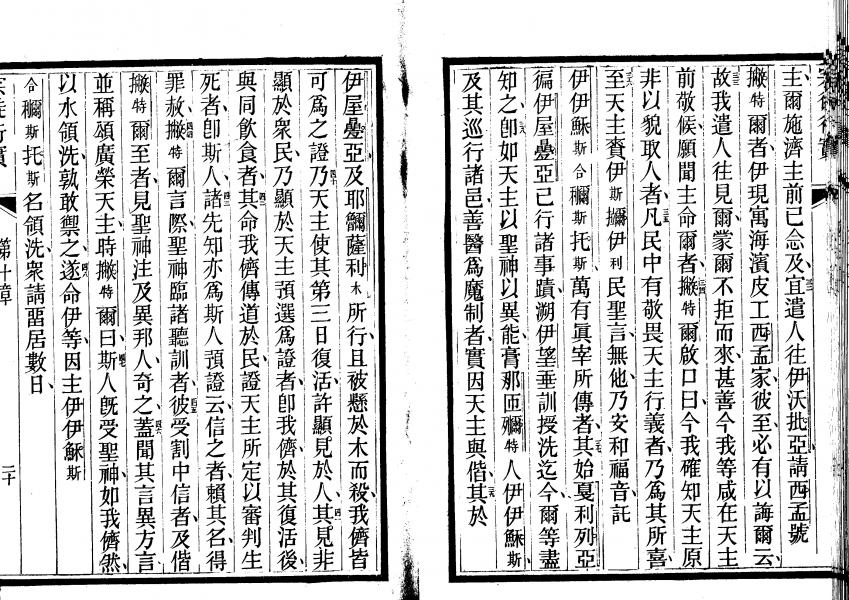 主爾施濟主前已念及宜遣人往伊沃批亞請西孟號
撇特爾者伊現寓海濱皮工西孟家彼至必有以誨爾云
故我遣人往見爾蒙爾不拒而來甚善今我等咸在天主
前敬候願聞主命爾者撇特爾啟口曰今我確知天主原
非以貌取人者凡民中有敬畏天主行義者乃爲其所喜
至天主賚伊斯攦伊利民聖言無他乃安和福音託
伊伊穌斯合襧斯托斯萬有眞宰所傳者其始戛利列亞
徧伊屋疊亞已行諸事蹟溯伊望垂訓授洗迄今爾等盡
知之卽如天主以聖神以異能膏那匝襧特人伊伊穌斯
及其巡行諸邑善醫爲魔制者實因天主與偕其於
伊屋疊亞及耶爾薩利木所行且被懸於木而殺我儕皆
可爲之證乃天主使其第三日復活許顯見於人其見非
顯於衆民乃顯於天主預選爲證者卽我儕於其復活後
與同飲食者其命我儕傳道於民證天主所定以審判生
死者卽斯人諸先知亦爲斯人預證云信之者賴其名得
罪赦撇特爾言際聖神臨諸聽訓者彼受割中信者及偕
撇特爾至者見聖神注及異邦人奇之蓋聞其言異方言
並稱頌廣榮天主時撇特爾曰斯人旣受聖神如我儕然
以水領洗孰敢禦之遂命伊等因主伊伊穌斯
合襧斯托斯名領洗衆請畱居數日
宗徒行實
第十章
二十